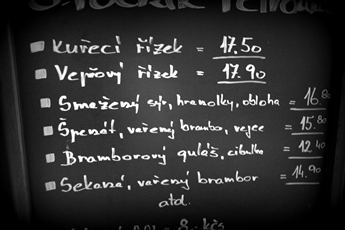 Kuřecí řízek = 17.50
Vepřový řízek = 17.90
Smažený sýr, hranolky, obloha = 16.80
Špenát, vařený brambor, vejce = 15.80
Bramborový guláš, cibulka = 12.40
Sekaná, vařený brambor = 14.90
atd.